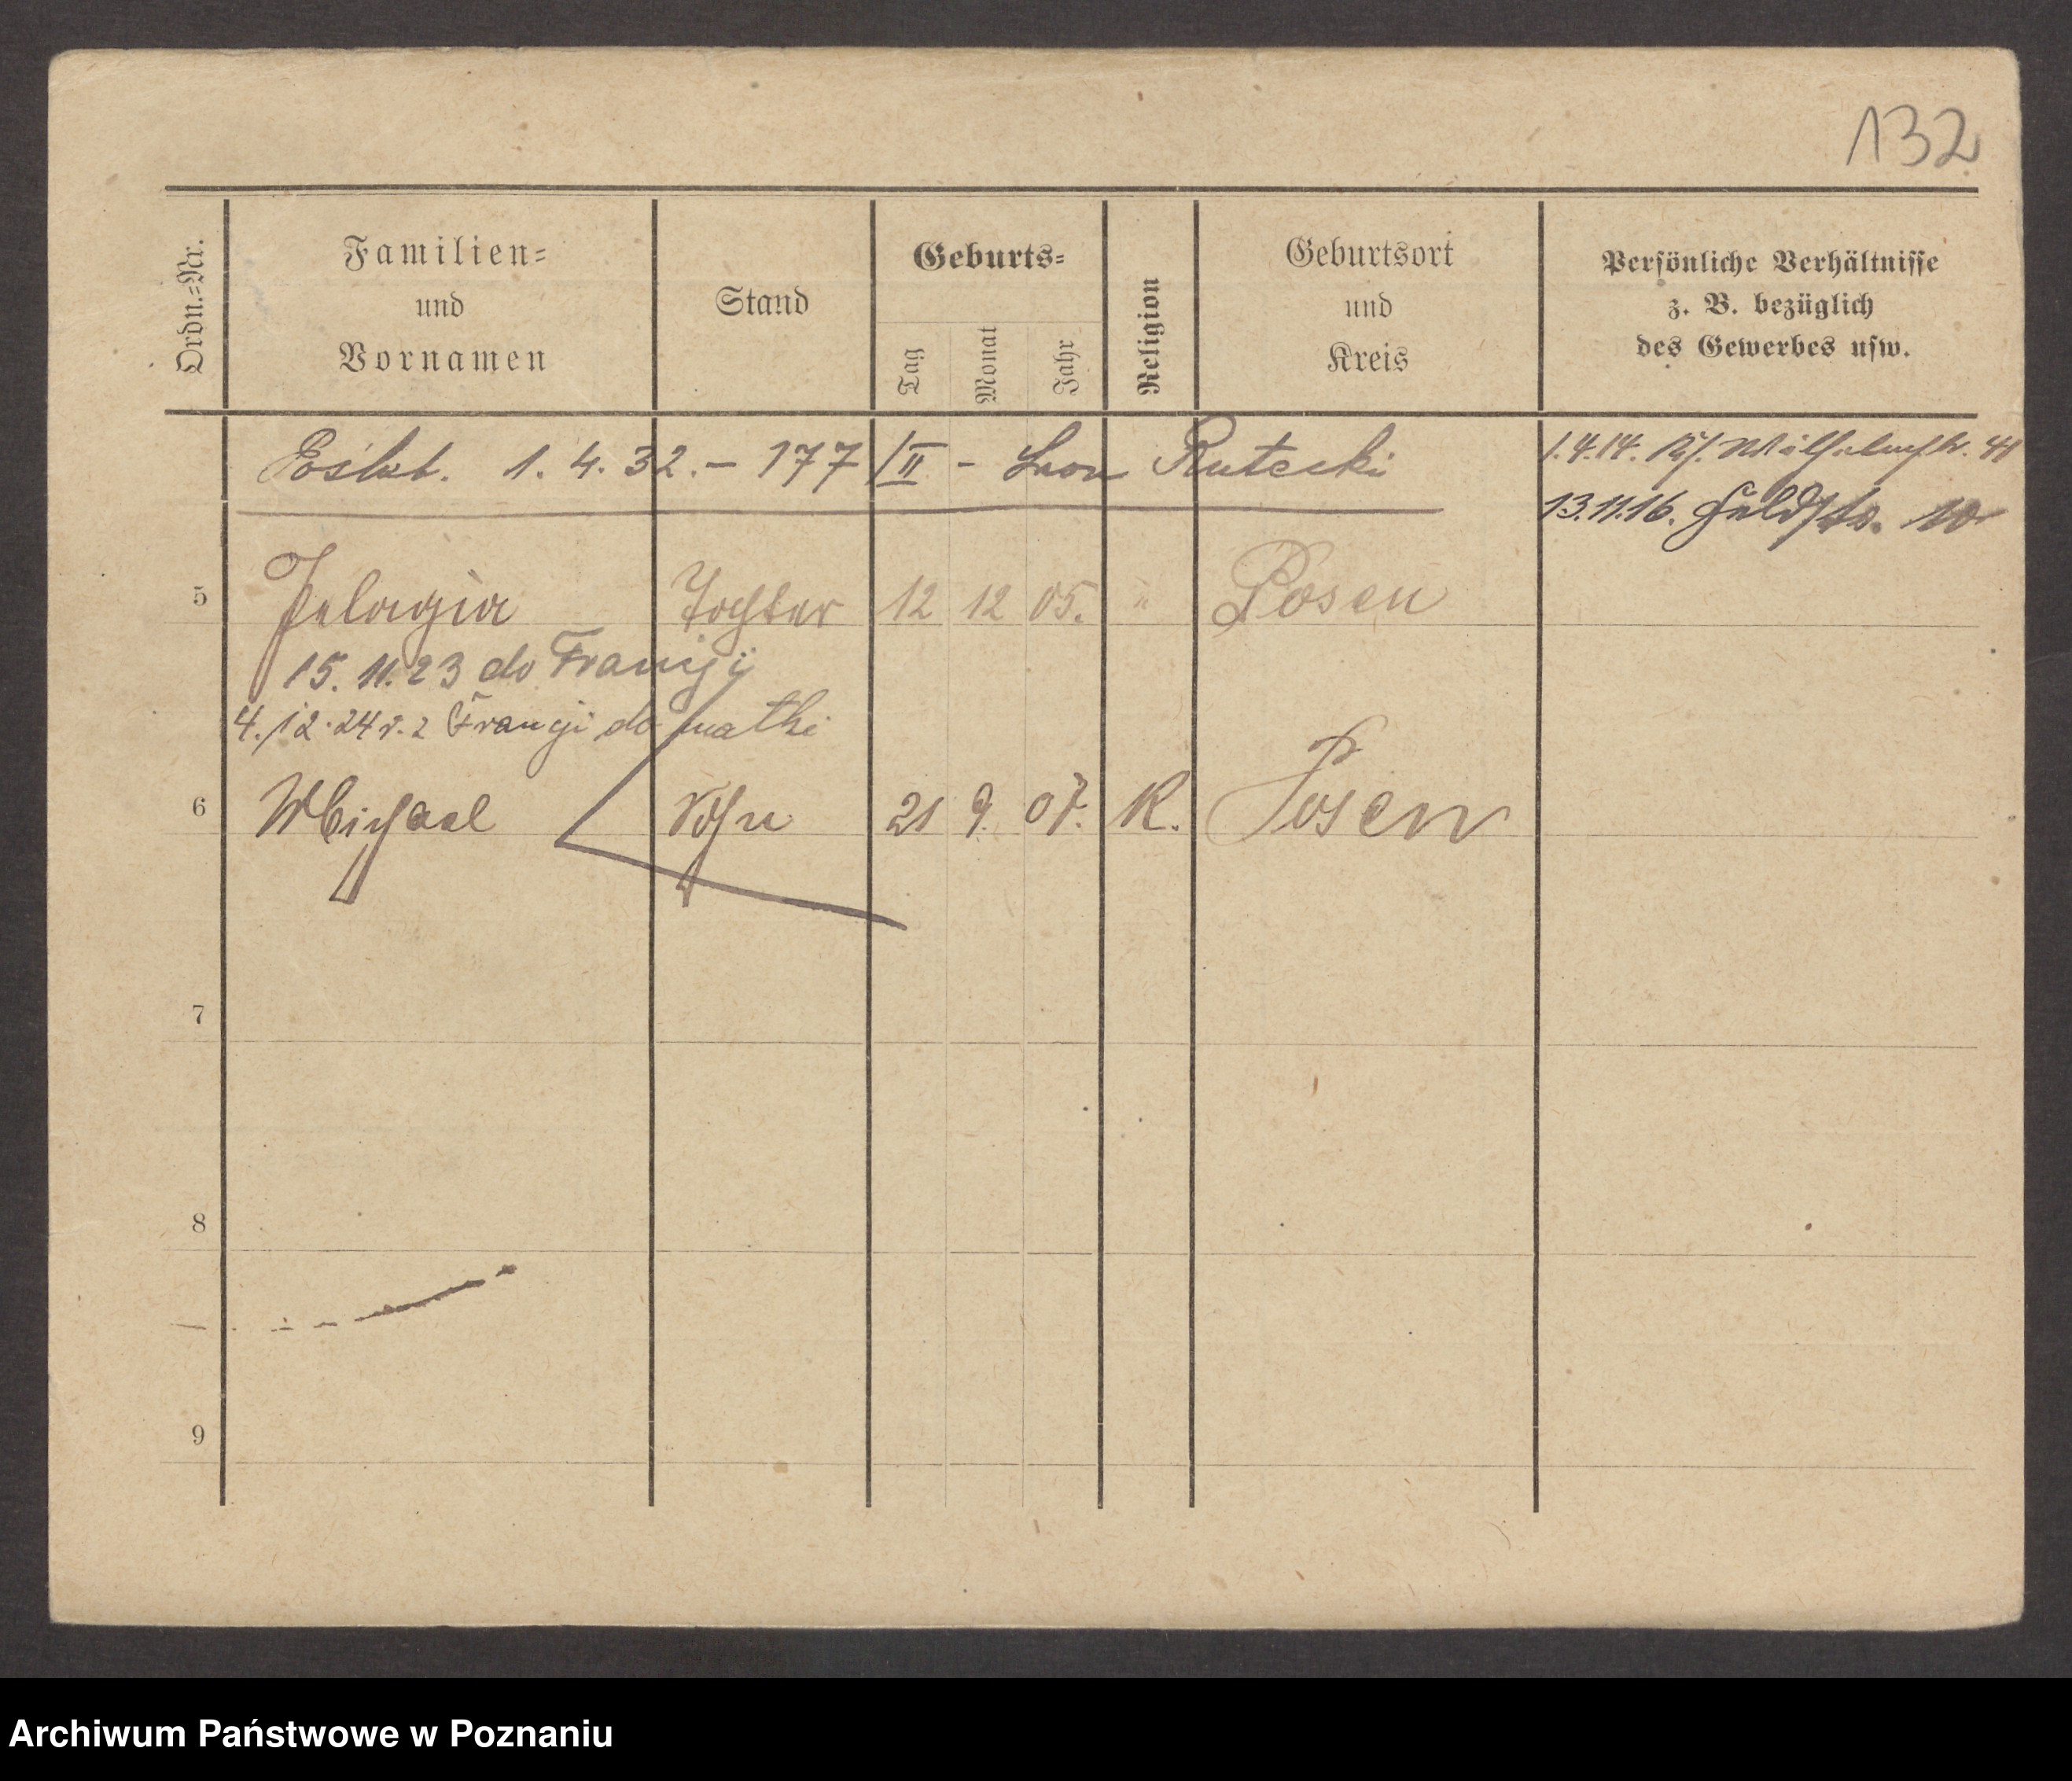 132
Ordn.=Nr.
Familien=
und
Vornamen
Stand
Geburts=
Tag
Monat
Jahr
Religion
Geburtsort
und
Kreis
Persönliche Verhältnisse
z. B. bezüglich
des Gewerbes usw.
1. 4. 32. – 177/II – Leon Rutecki
1.4.14. 41
13.11.16. Feldstr. 10
5 Pelagia Tochter 12 12 05. " Posen
15. 11. 23 do Francji
4. 12. 24 r. z Francji do matki
6 Michael Sohn 21 9. 07. K. Posen
7
8
9
Archiwum Państwowe w Poznaniu